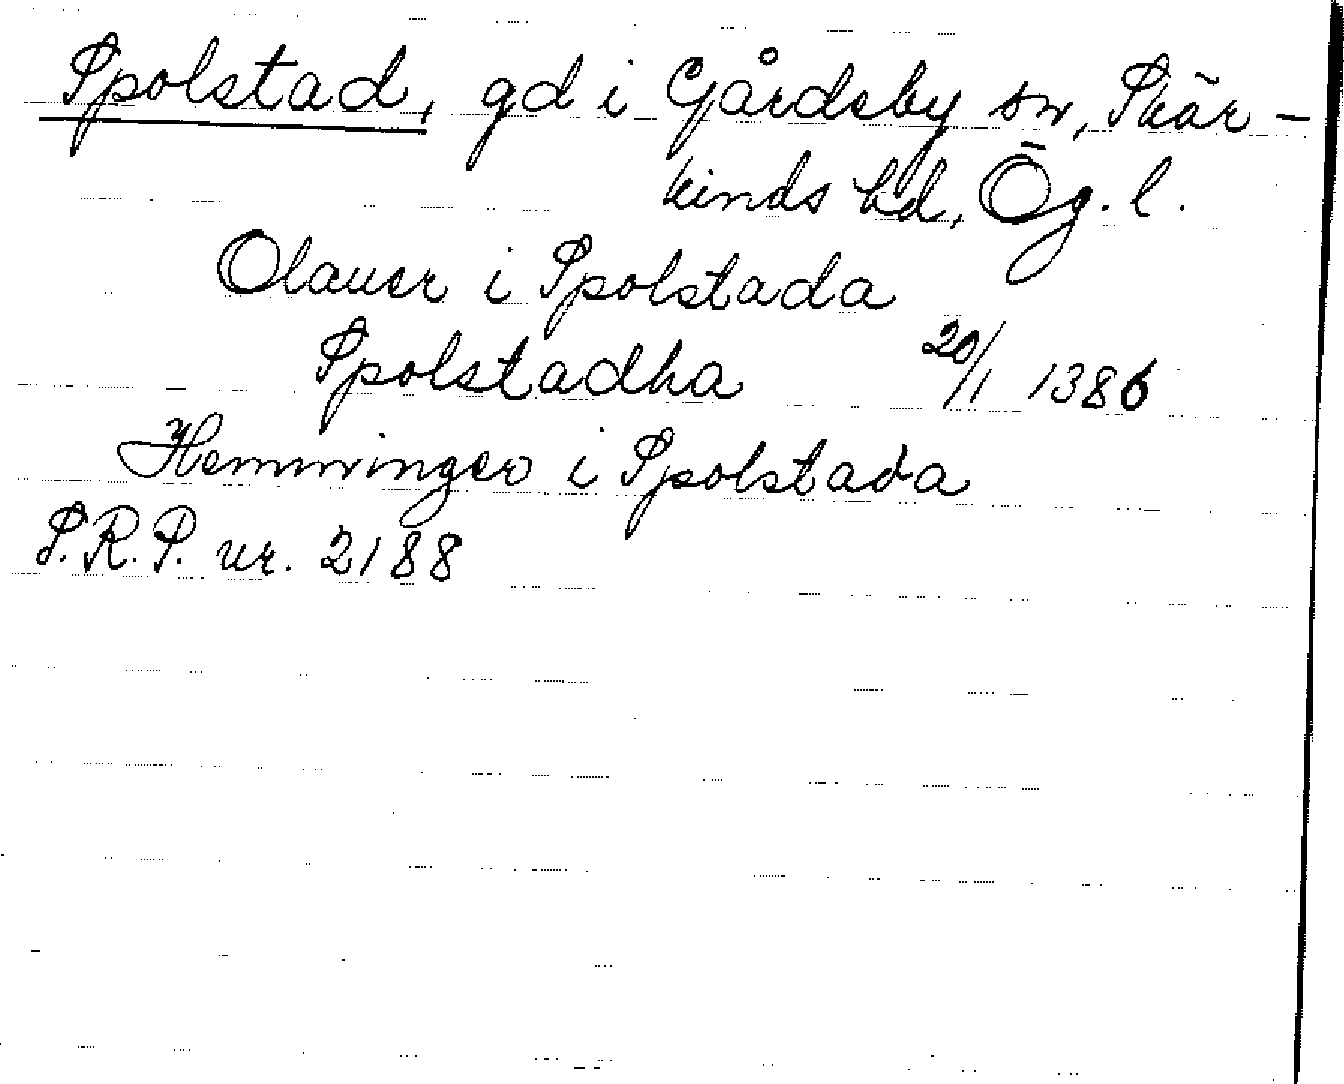 Spolstad, gd i Gårdsby sn, Skär-
kinds hd, Ög. l.
Olauer i Spolstada
Spolstadha 20/1 1386
Hemminger i Spolstada
S.R.P. nr. 2188